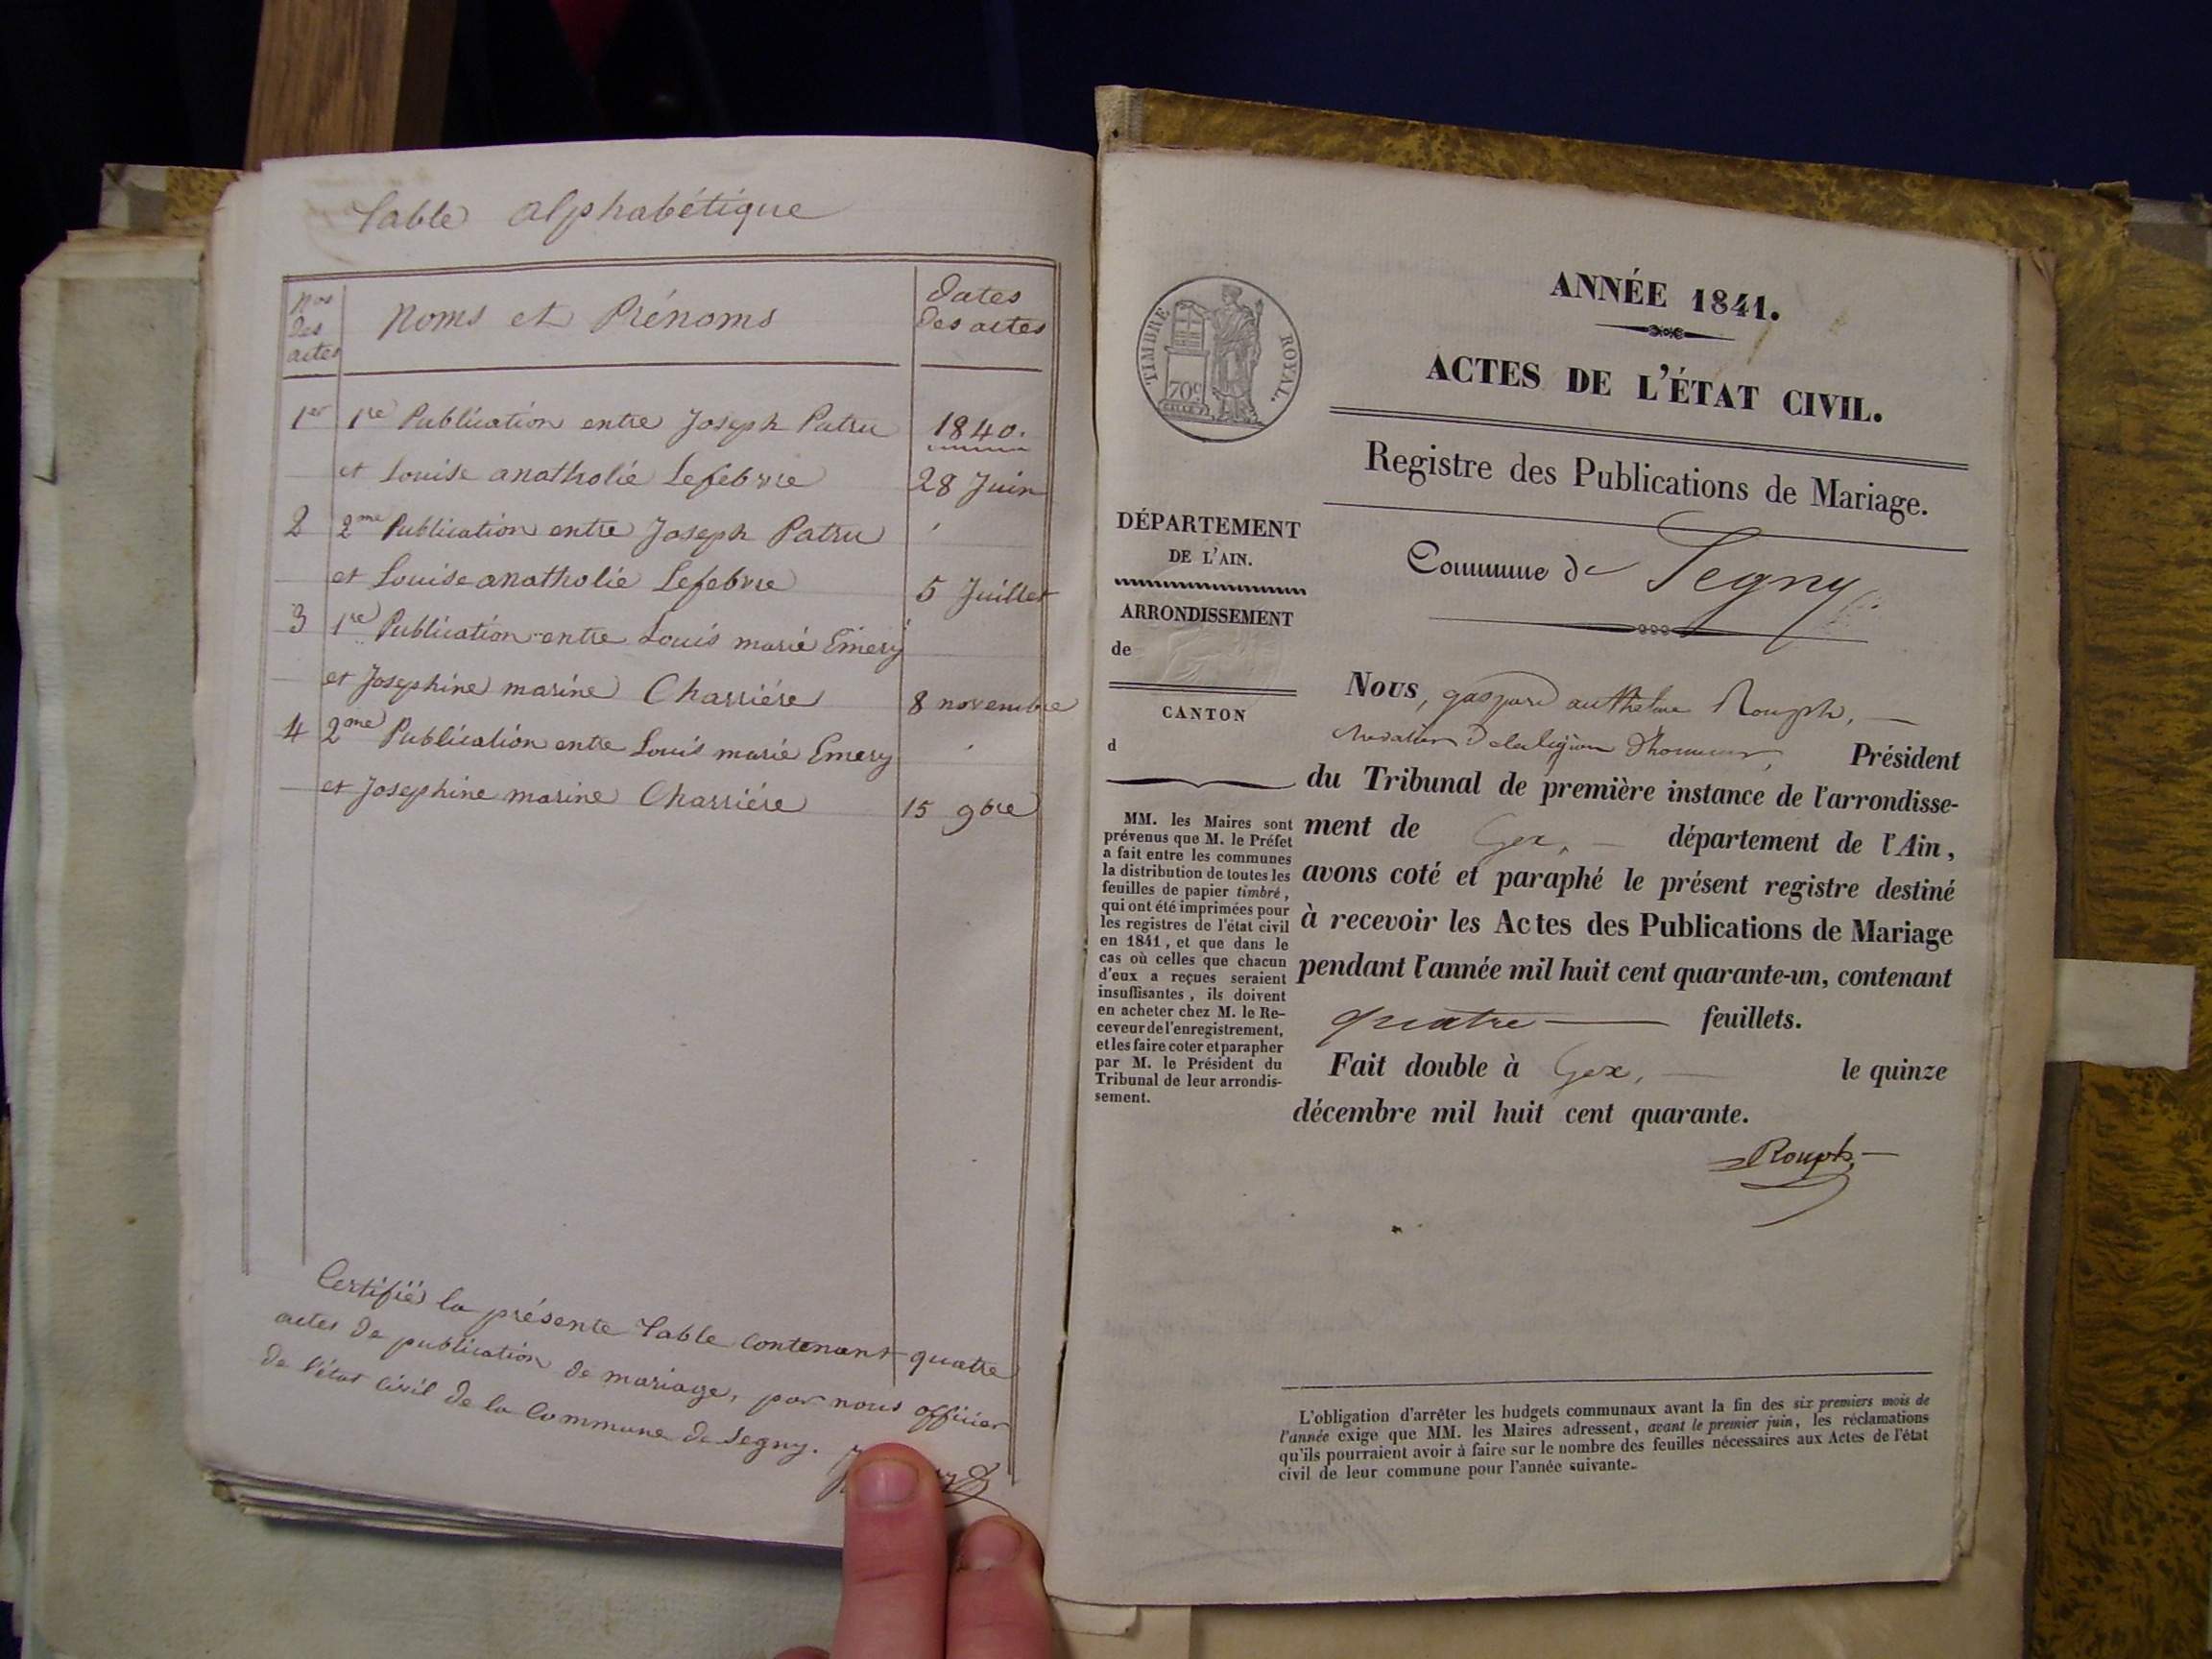 Table alphabétique
Nos des actes
Noms et Prénoms
Dates des actes
1er 1re Publication entre Joseph Patru 1840.
et Louise anatholie Lefebvre 28 Juin
2 2me Publication entre Joseph Patru
et Louise anatholie Lefebvre 5 Juillet
3 1re Publication entre Louis marie Emery
et Josephine marine Charriére 8 novembre
4 2me Publication entre Louis marie Emery
et Josephine marine Charriére 15 9bre
Certifiés la présente Table contenant quatre
actes de publication de mariage, par nous officier
de l'état civil de la Commune de Segny.
TIMBRE ROYAL.
70c
ANNÉE 1841.
ACTES DE L'ÉTAT CIVIL.
Registre des Publications de Mariage.
Commune de Segny
DÉPARTEMENT
DE L'AIN.
ARRONDISSEMENT
de
CANTON
d
MM. les Maires sont
prévenus que M. le Préfet
a fait entre les communes
la distribution de toutes les
feuilles de papier timbré,
qui ont été imprimées pour
les registres de l'état civil
en 1841, et que dans le
cas où celles que chacun
d'eux a reçues seraient
insuffisantes, ils doivent
en acheter chez M. le Re-
ceveur de l'enregistrement,
et les faire coter et parapher
par M. le Président du
Tribunal de leur arrondis-
sement.
Nous, gaspard anthelme Rouph,
chevalier de la légion d'honneur, Président
du Tribunal de première instance de l'arrondisse-
ment de Gex, département de l'Ain,
avons coté et paraphé le présent registre destiné
à recevoir les Actes des Publications de Mariage
pendant l'année mil huit cent quarante-un, contenant
quatre feuillets.
Fait double à Gex, le quinze
décembre mil huit cent quarante.
Rouph
L'obligation d'arrêter les budgets communaux avant la fin des six premiers mois de
l'année exige que MM. les Maires adressent, avant le premier juin, les réclamations
qu'ils pourraient avoir à faire sur le nombre des feuilles nécessaires aux Actes de l'état
civil de leur commune pour l'année suivante.